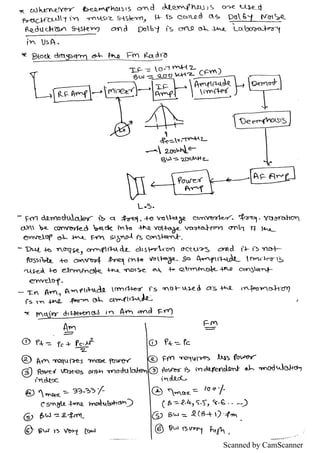 * whenever preemphasis and deemphasis are used
practically in music system, it is called as Dolby Noise
Reduction System and Dolby is one of the laboratory
in USA.
* Block diagram of the Fm Radio
IF = 10.7 mHz
BW = 200 kHz (Fm)
RF Amp
mixer
IF Amp
Amplitude limiter
Demod
L.O
fIF=10.7mHz
200kHz
BW = 200kHz
Deemphasis
AF Amp
Power Amp
L.S.
- Fm demodulator is a freq. to voltage converter. freq. variation
will be converted back into the voltage variation only if the
envelop of the Fm signal is constant.
- Due to noise, amplitude distortion occurs and it is not
possible to convert freq into voltage. So Amplitude limiter is
used to eliminate the noise or to eliminate the constant
envelop.
- In Am, Amplitude limiter is not used as the information
is in the form of amplitude.
* major different in Am and Fm
Am
Fm
① Pt = Pc + Pcμ²/2
① Pt = Pc
② Am requires more power
② Fm requires less power
③ Power varies with modulation index
③ Power is independent of modulation index
④ ηmax = 33.33%
(single tone modulation)
④ ηmax = 100%
(β = 2.4, 5.5, 8.6 .....)
⑤ BW = 2fm
⑤ BW = 2(β+1)fm
⑥ BW is very low
⑥ BW is very high.
Scanned by CamScanner